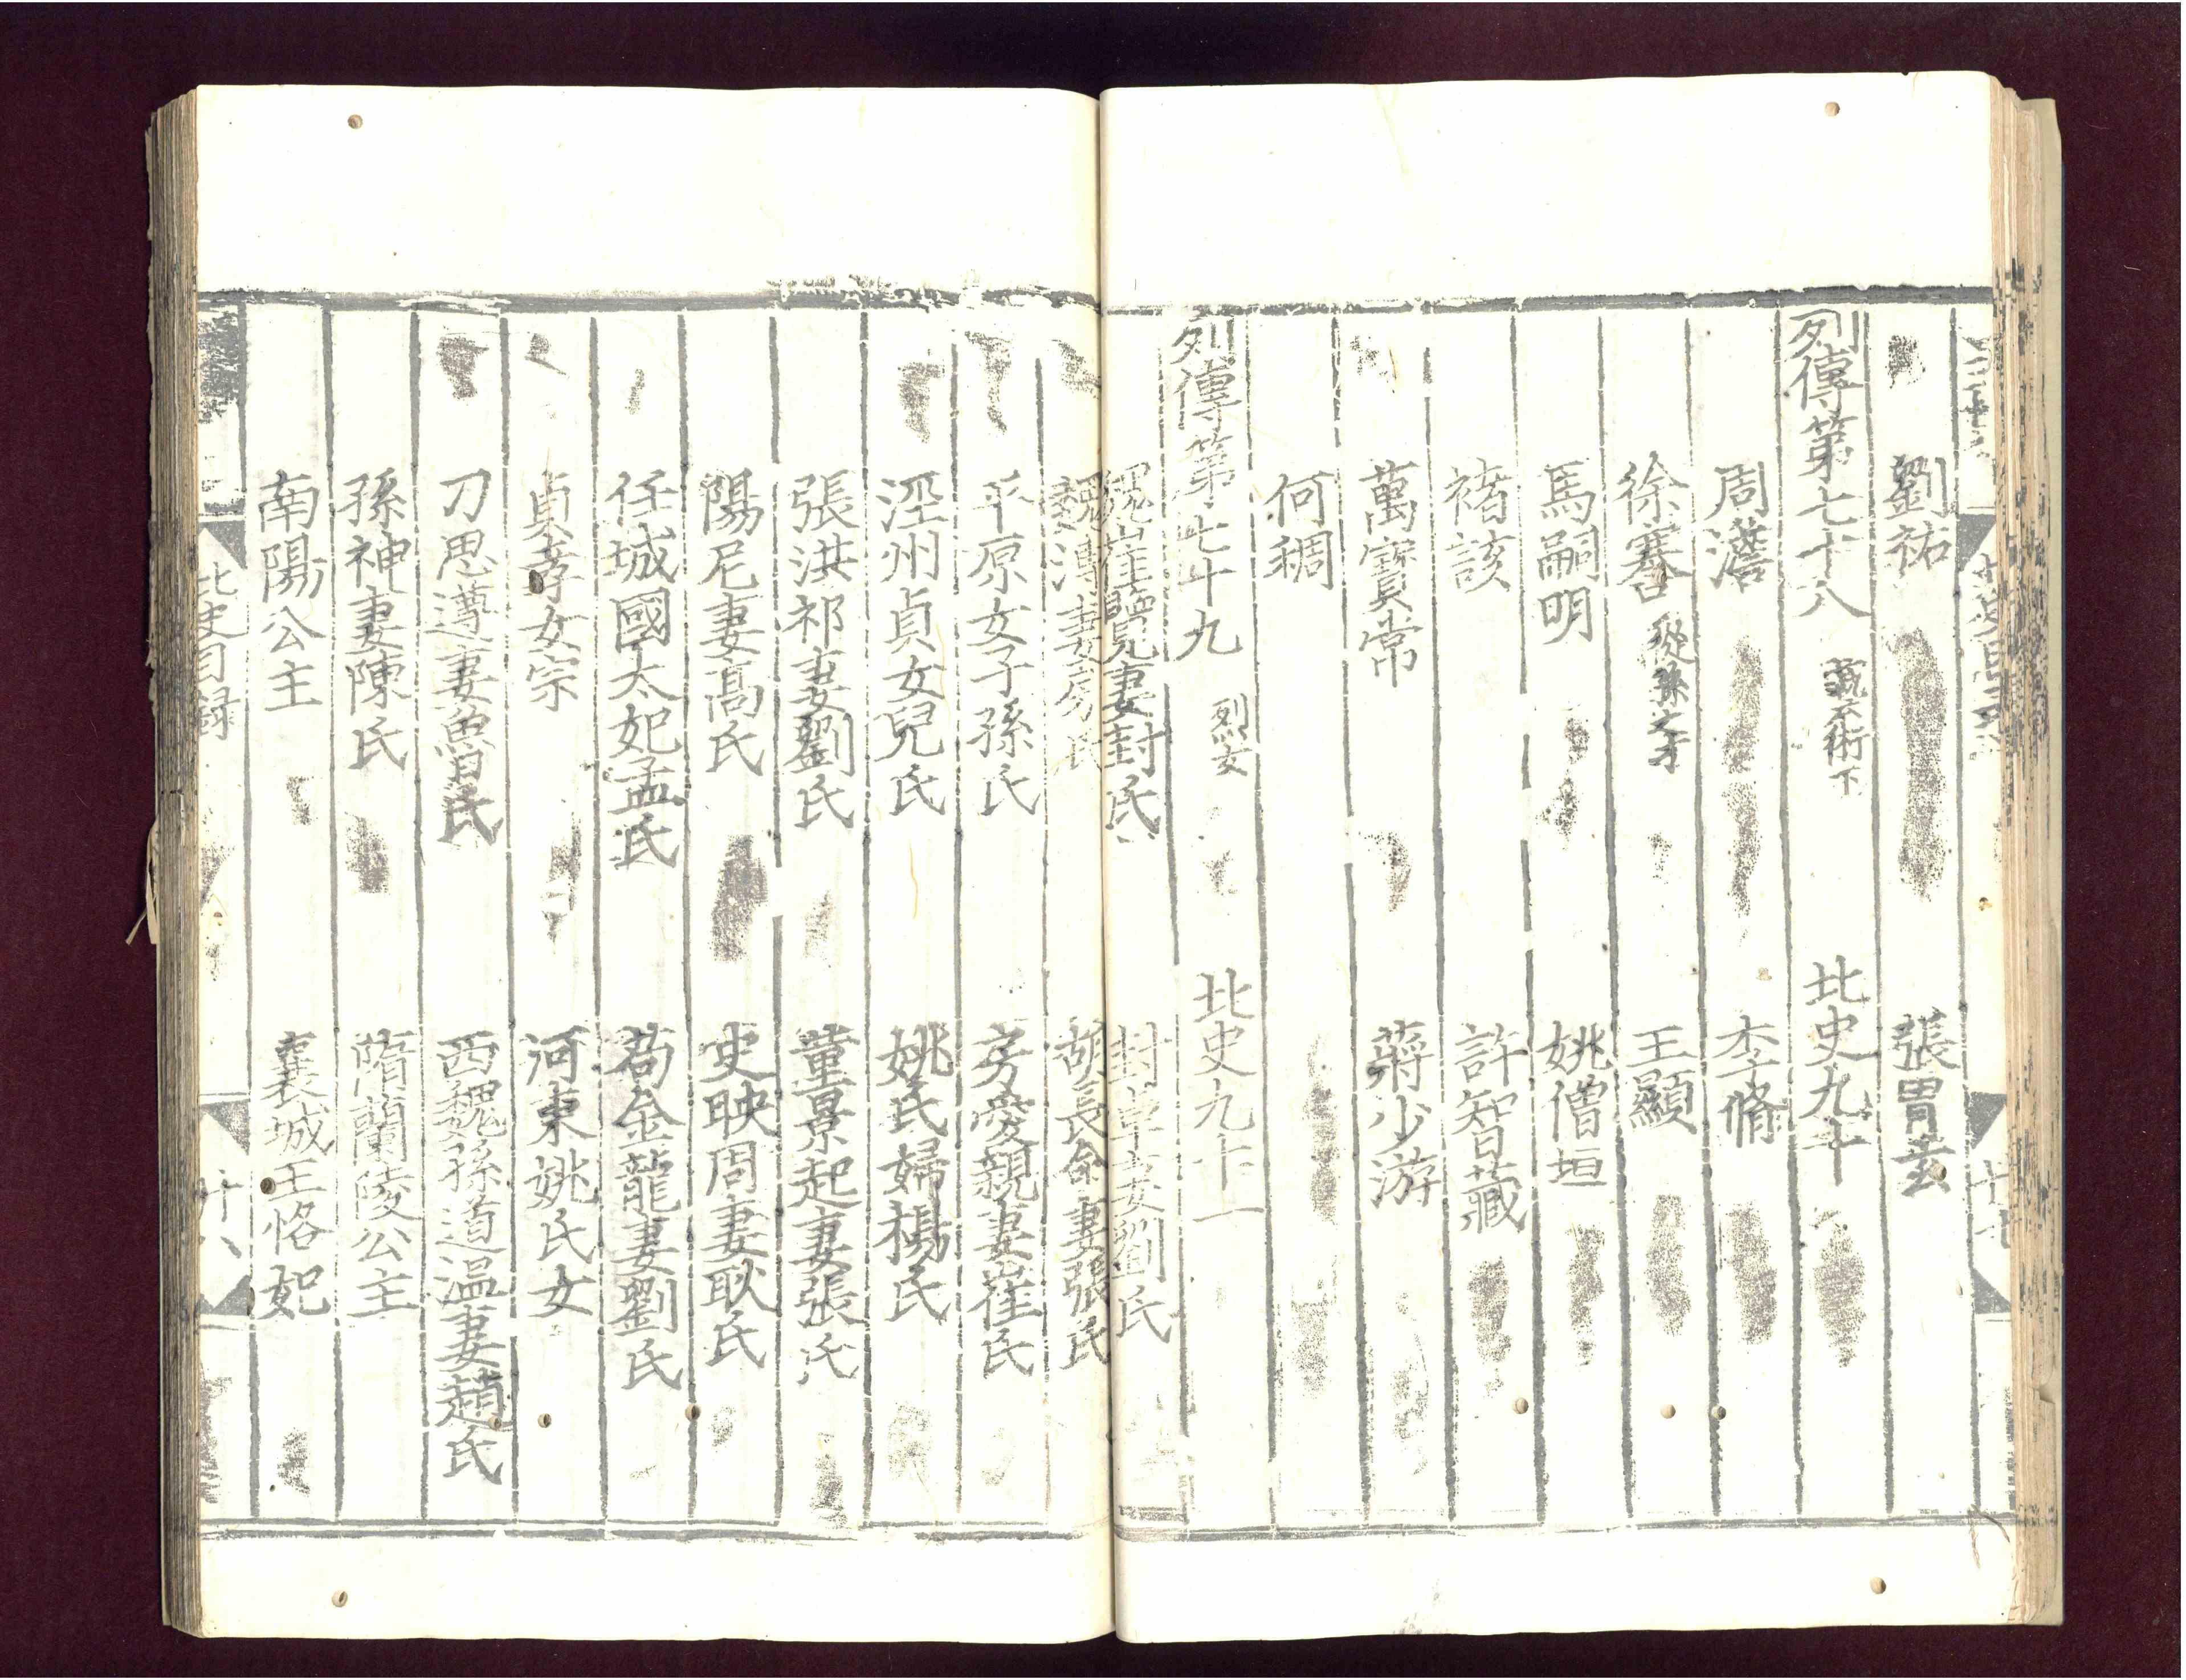 劉祐 張胄玄
列傳第七十八 藝術下 北史九十
周澹 李脩
徐謇 從孫之才 王顯
馬嗣明 姚僧垣
褚該 許智藏
萬寶常 蔣少游
何稠
列傳第七十九 列女 北史九十一
魏崔覽妻封氏 封卓妻劉氏
魏溥妻房氏 胡長命妻張氏
平原女子孫氏 房愛親妻崔氏
涇州貞女兒氏 姚氏婦楊氏
張洪祁妻劉氏 董景起妻張氏
陽尼妻高氏 史映周妻耿氏
任城國太妃孟氏 苟金龍妻劉氏
貞孝女宗 河東姚氏女
刀思遵妻魯氏 西魏孫道温妻趙氏
孫神妻陳氏 隋蘭陵公主
南陽公主 襄城王恪妃
北史目録 十八